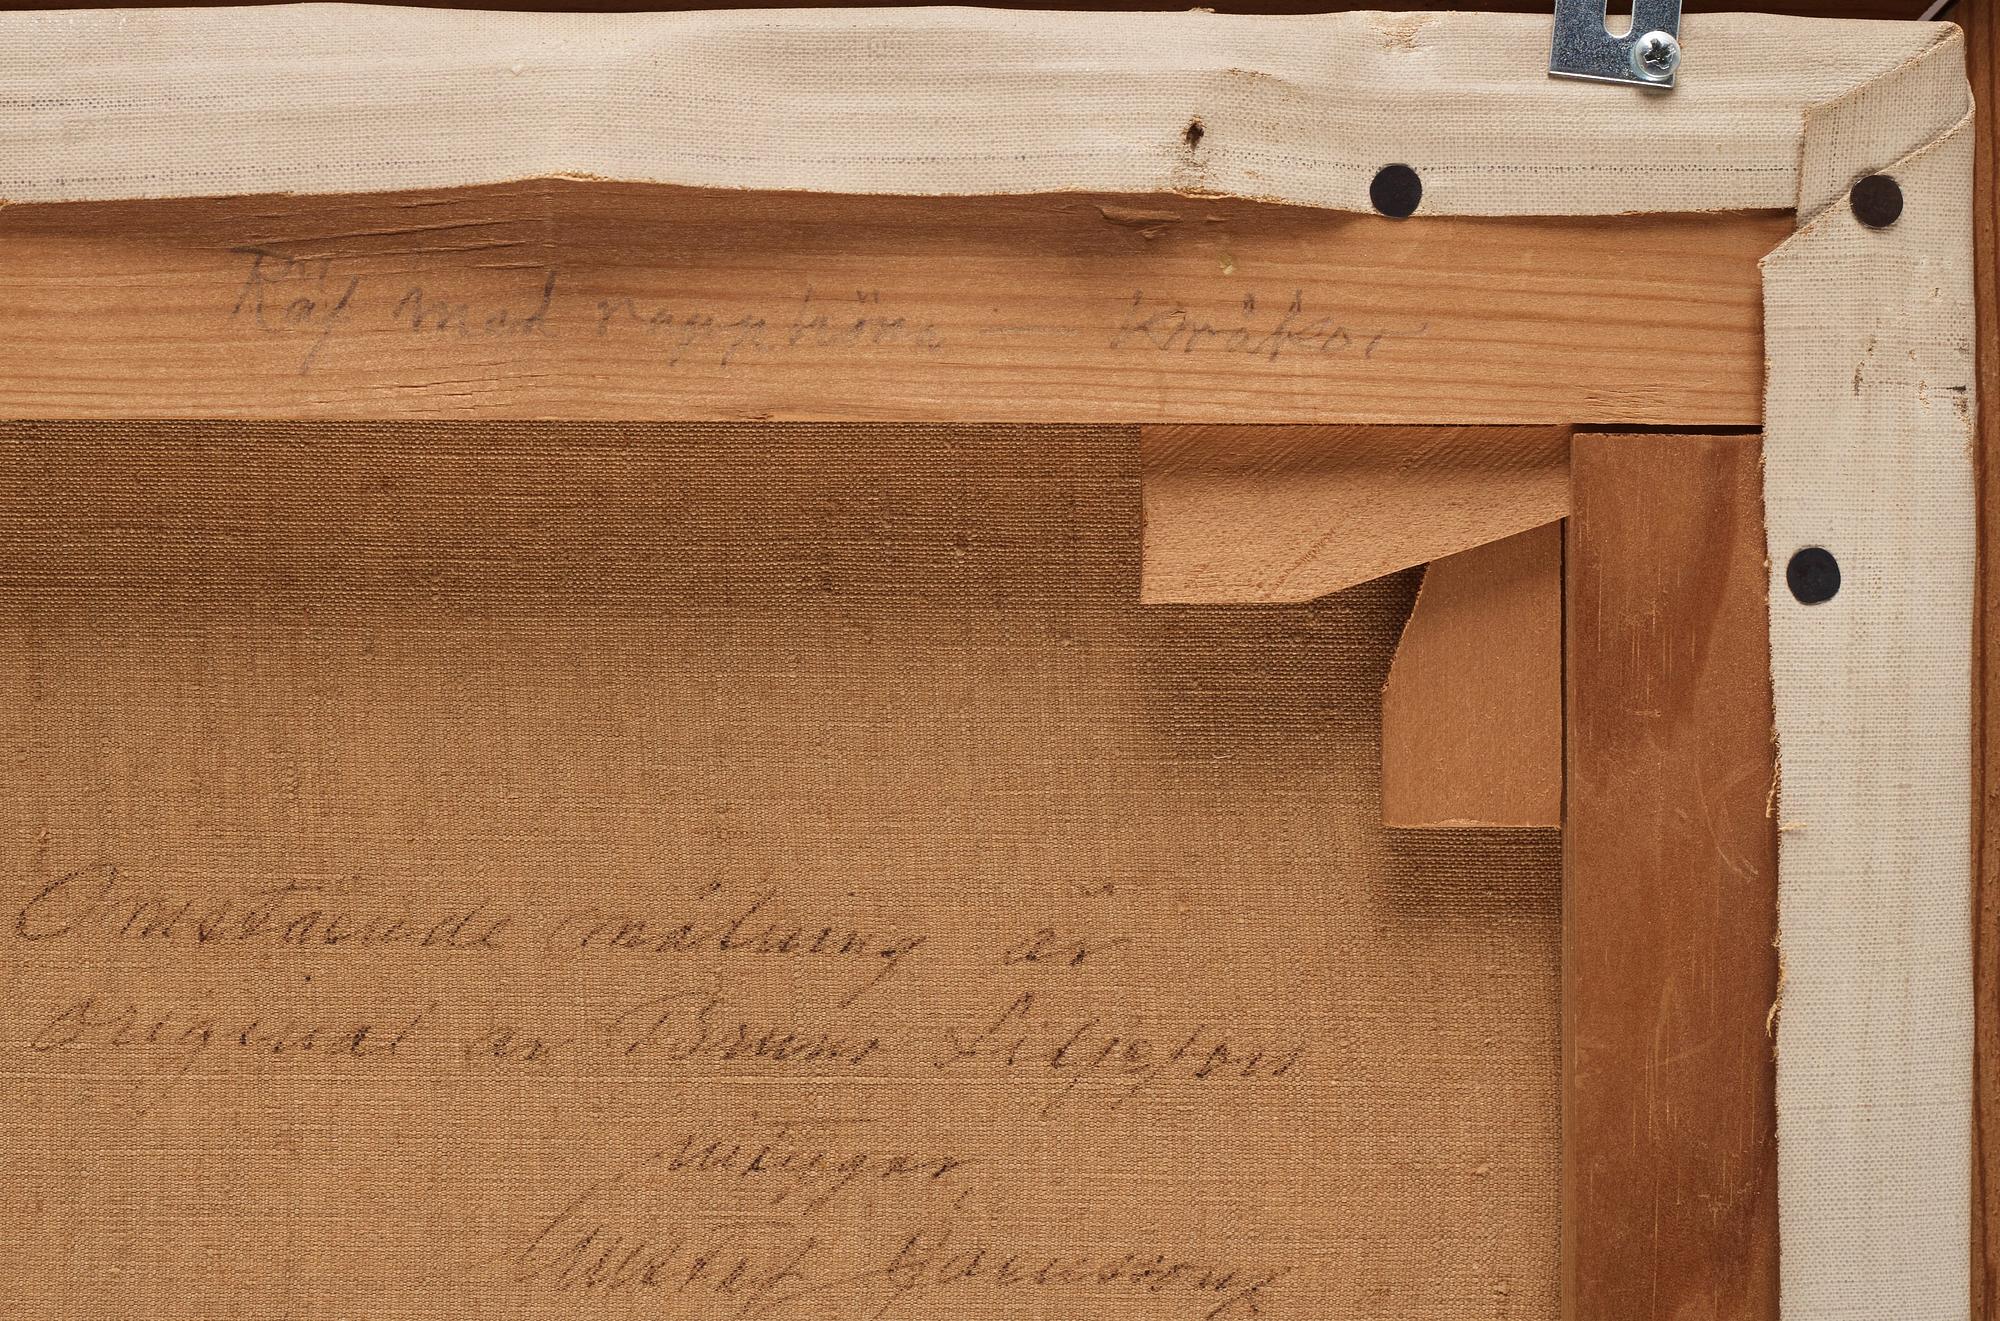 Räf med rapphöna — kråkor
Omstående målning är
original av Bruno Liljefors
intygar